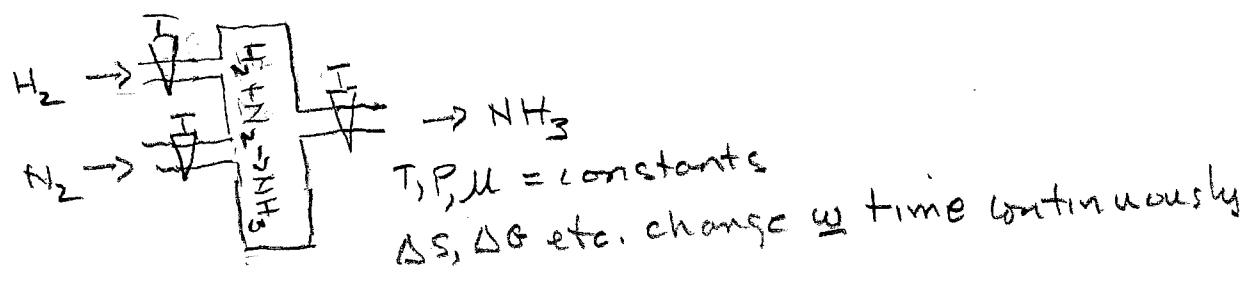 H₂ →
N₂ →
H₂ + N₂ → NH₃
→ NH₃
T, P, μ = constants
ΔS, ΔG etc. change w time continuously